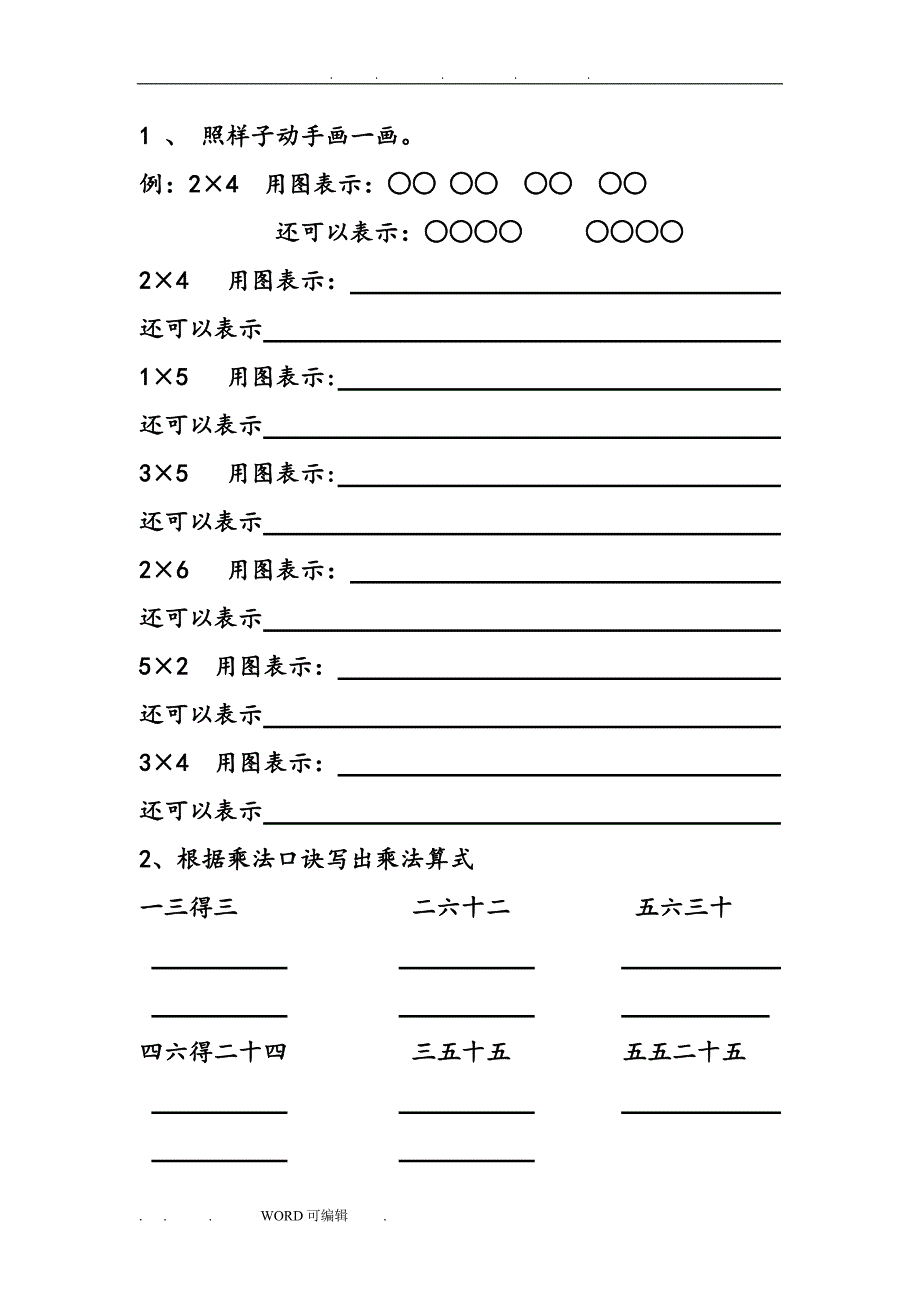 1 、 照样子动手画一画。
例：2×4 用图表示：○○ ○○ ○○ ○○
还可以表示：○○○○ ○○○○
2×4 用图表示：
还可以表示
1×5 用图表示：
还可以表示
3×5 用图表示：
还可以表示
2×6 用图表示：
还可以表示
5×2 用图表示：
还可以表示
3×4 用图表示：
还可以表示
2、根据乘法口诀写出乘法算式
一三得三 二六十二 五六三十
四六得二十四 三五十五 五五二十五
. . . WORD 可编辑 .